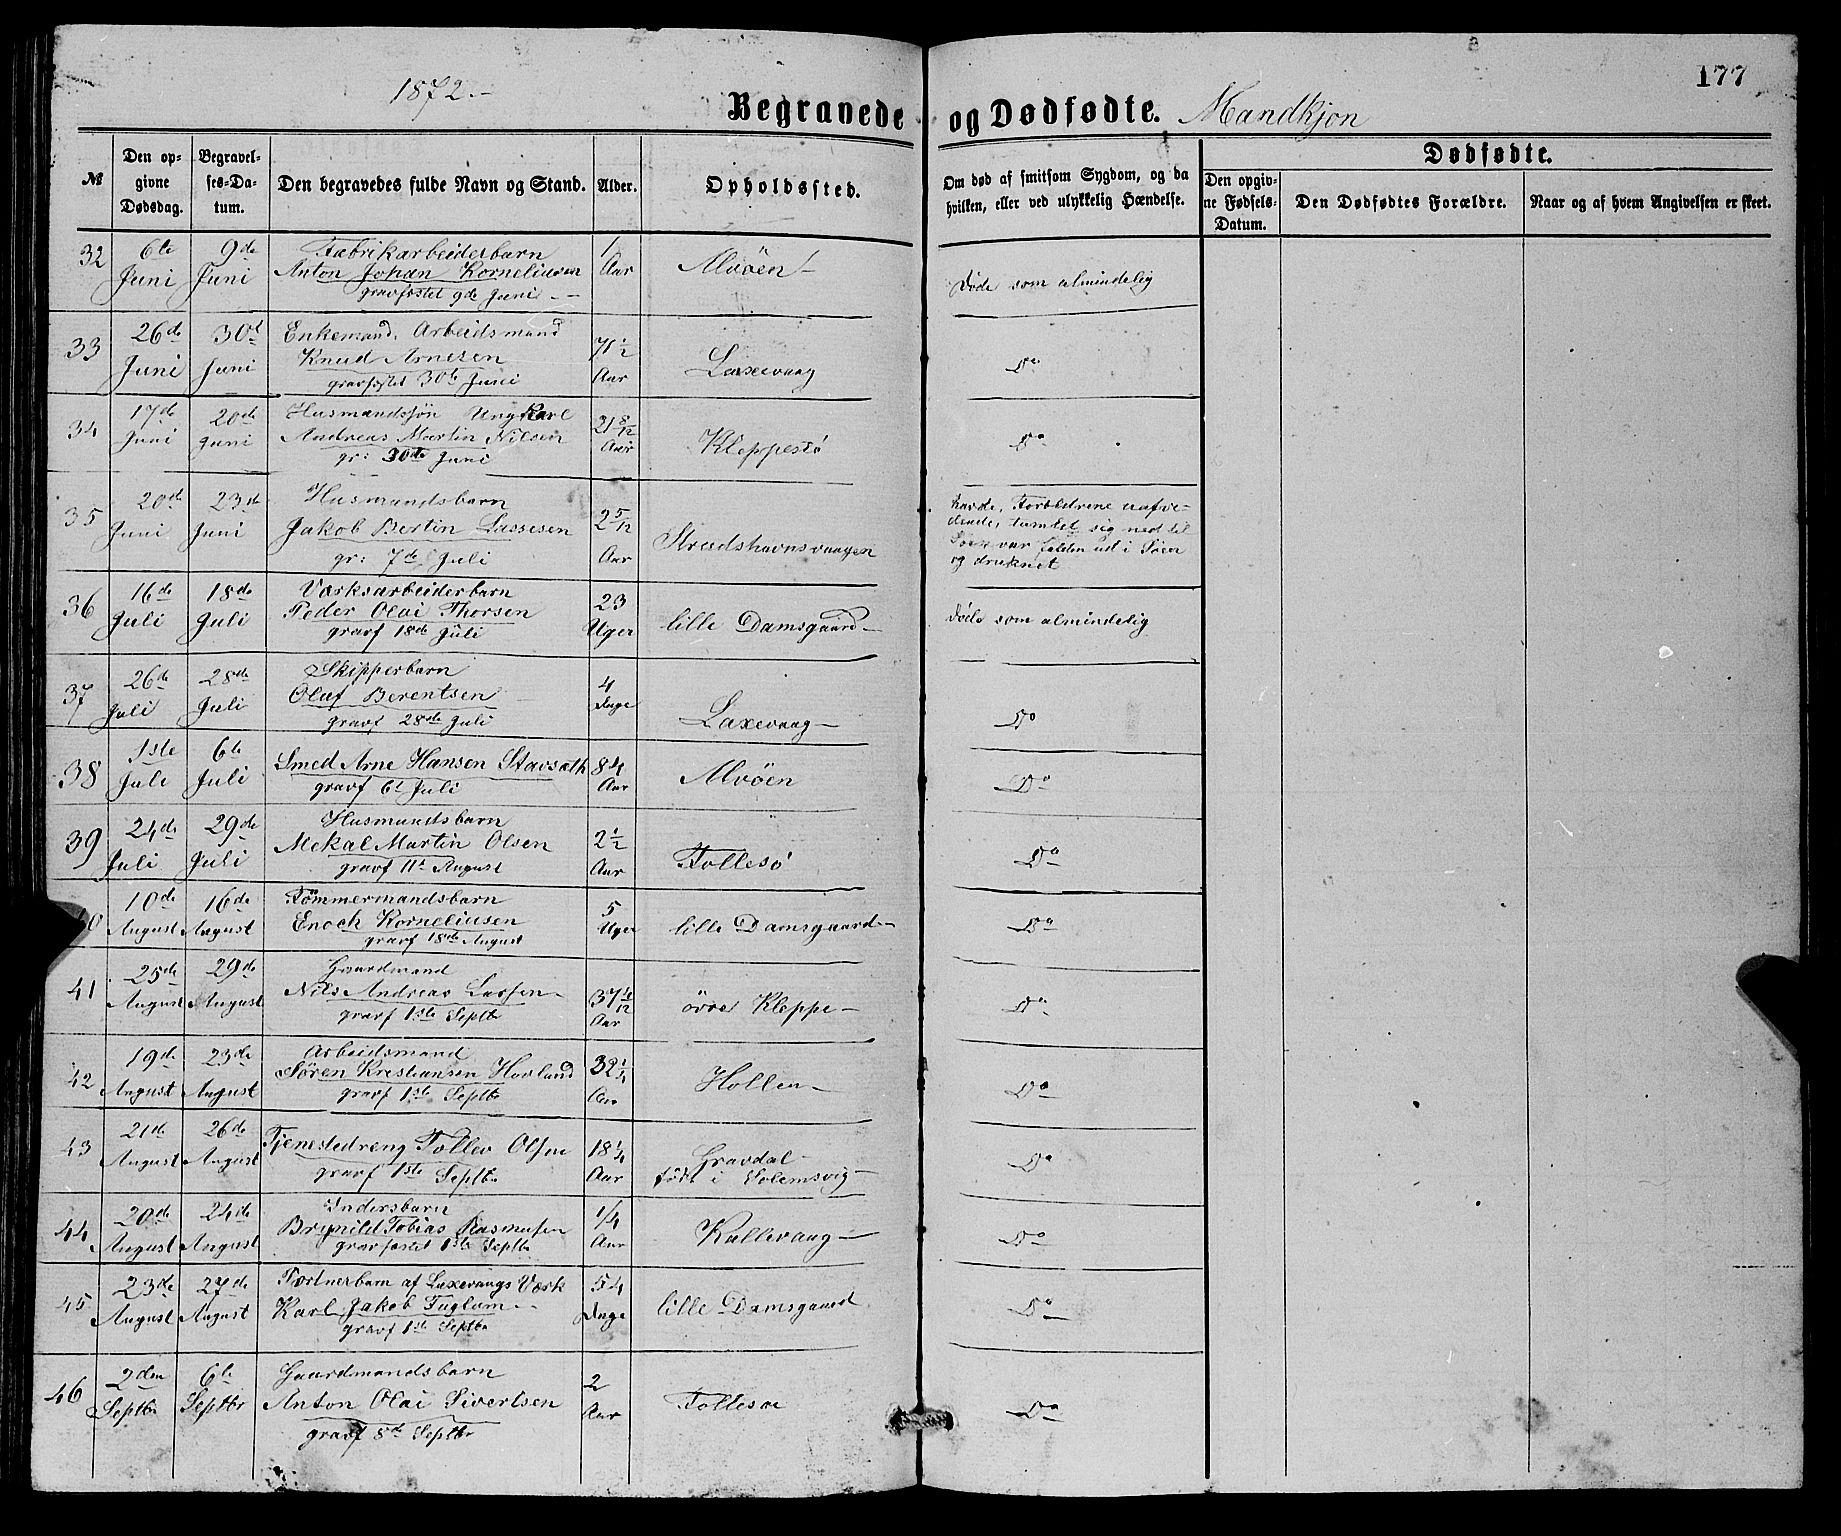 177
1872.-
Begravede og Dødfødte. Mandkjøn
№
Den opgivne Dødsdag.
Begravelses-Datum.
Den begravedes fulde Navn og Stand.
Alder.
Opholdssted.
Om død af smitsom Sygdom, og da hvilken, eller ved ulykkelig Hændelse.
Dødfødte.
Den opgivne Fødsels-Datum.
Den Dødfødtes Forældre.
Naar og af hvem Angivelsen er skeet.
32 6te Juni 9de Juni Fabrikarbeiderbarn 1 Aar Alvøen-
Anton Johan Korneliussen
gravfæstet 9de Juni - Døde som almindelig
33 26de Juni 30te Juni Enkemand. Arbeidsmand 71 1/2 Aar Laxevaag
Knud Arnesen
gravfæstet 30te Juni Do
34 17de Juni 20de Juni Husmandssøn Ungkarl 21 8/12 Aar Kleppestø
Andreas Martin Nilsen
gr: 30te Juni Do
35 20de Juni 23de Juni Husmandsbarn 2 5/12 Aar Strudshavnsvaagen
Jakob Bertin Lassesen
gr: 7de Juli
havde, Forældrene uafvi-
dende, tumlet sig ned til
Søen var falden ud i Søen
og druknet
36 16de Juli 18de Juli Værksarbeiderbarn 23 Uger lille Damsgaard-
Peder Olai Thorsen
gravf 18de Juli Døde som almindelig
37 26de Juli 28de Juli Skipperbarn 4 Dage Laxevaag-
Oluf Berentsen
gravf 28de Juli Do
38 1ste Juli 6te Juli Smed Arne Hansen Stavsæth 84 Aar Alvøen
gravf 6t Juli Do
39 24de Juli 29de Juli Husmandsbarn 2 1/2 Aar Follesø
Mekal Martin Olsen
gravf 11t August Do
0 10de August 16de August Tømmermandsbarn 5 Uger lille Damsgaard-
Enoch Korneliusen
gravf 18de August Do
41 25de August 29de August Gaardmand 37 Aar øvre Kleppe-
Nils Andreas Larsen-
gravf 1ste Septbr Do
42 19de August 23de August Arbeidsmand 32 1/4 Aar Hollen-
Søren Kristiansen Hovland
gravf 1ste Septbr Do
43 21de August 26de August Tjenestedreng Tollev Olsen 18 1/4 Aar Gravdal-
gravf 1ste Septbr født i Solemsvig- Do
44 20de August 24de August Indersbarn 1/4 Aar Kullevaag-
Brynild Tobias Rasmusen
gravfæstet 1ste Septbr Do
45 23de August 27de August Portnerbarn af Laxevaags Værk 54 Dage lille Damsgaard
Karl Jakob Fuglum-
gravf 1ste Septbr Do
46 2den Septbr 6te Septbr Gaardmandsbarn 2 Aar Follesøe
Anton Olai Sivertsen
gravf 8de Septbr Do